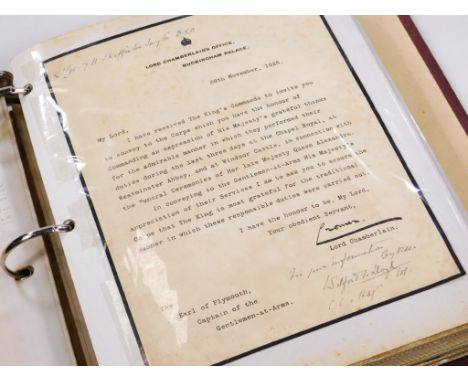 LORD CHAMBERLAIN'S OFFICE,
BUCKINGHAM PALACE.
28th November, 1925.
My Lord,
I have received The King's Commands to invite you
to convey to the Corps which you have the honour of
Commanding an expression of His Majesty's grateful thanks
for the admirable manner in which they performed their
duties during the last three days at the Chapel Royal, at
Westminster Abbey, and at Windsor Castle, in connection with
the Funeral Ceremonies of Her late Majesty Queen Alexandra.
In conveying to the Gentlemen-at-Arms His Majesty's
appreciation of their Services I am to ask you to assure the
Corps that The King is most grateful for the traditional
manner in which these responsible duties were carried out.
I have the honour to be, My Lord,
Your obedient Servant,
Cromer
Lord Chamberlain.
The
Earl of Plymouth,
Captain of the
Gentlemen-at-Arms.
For your information